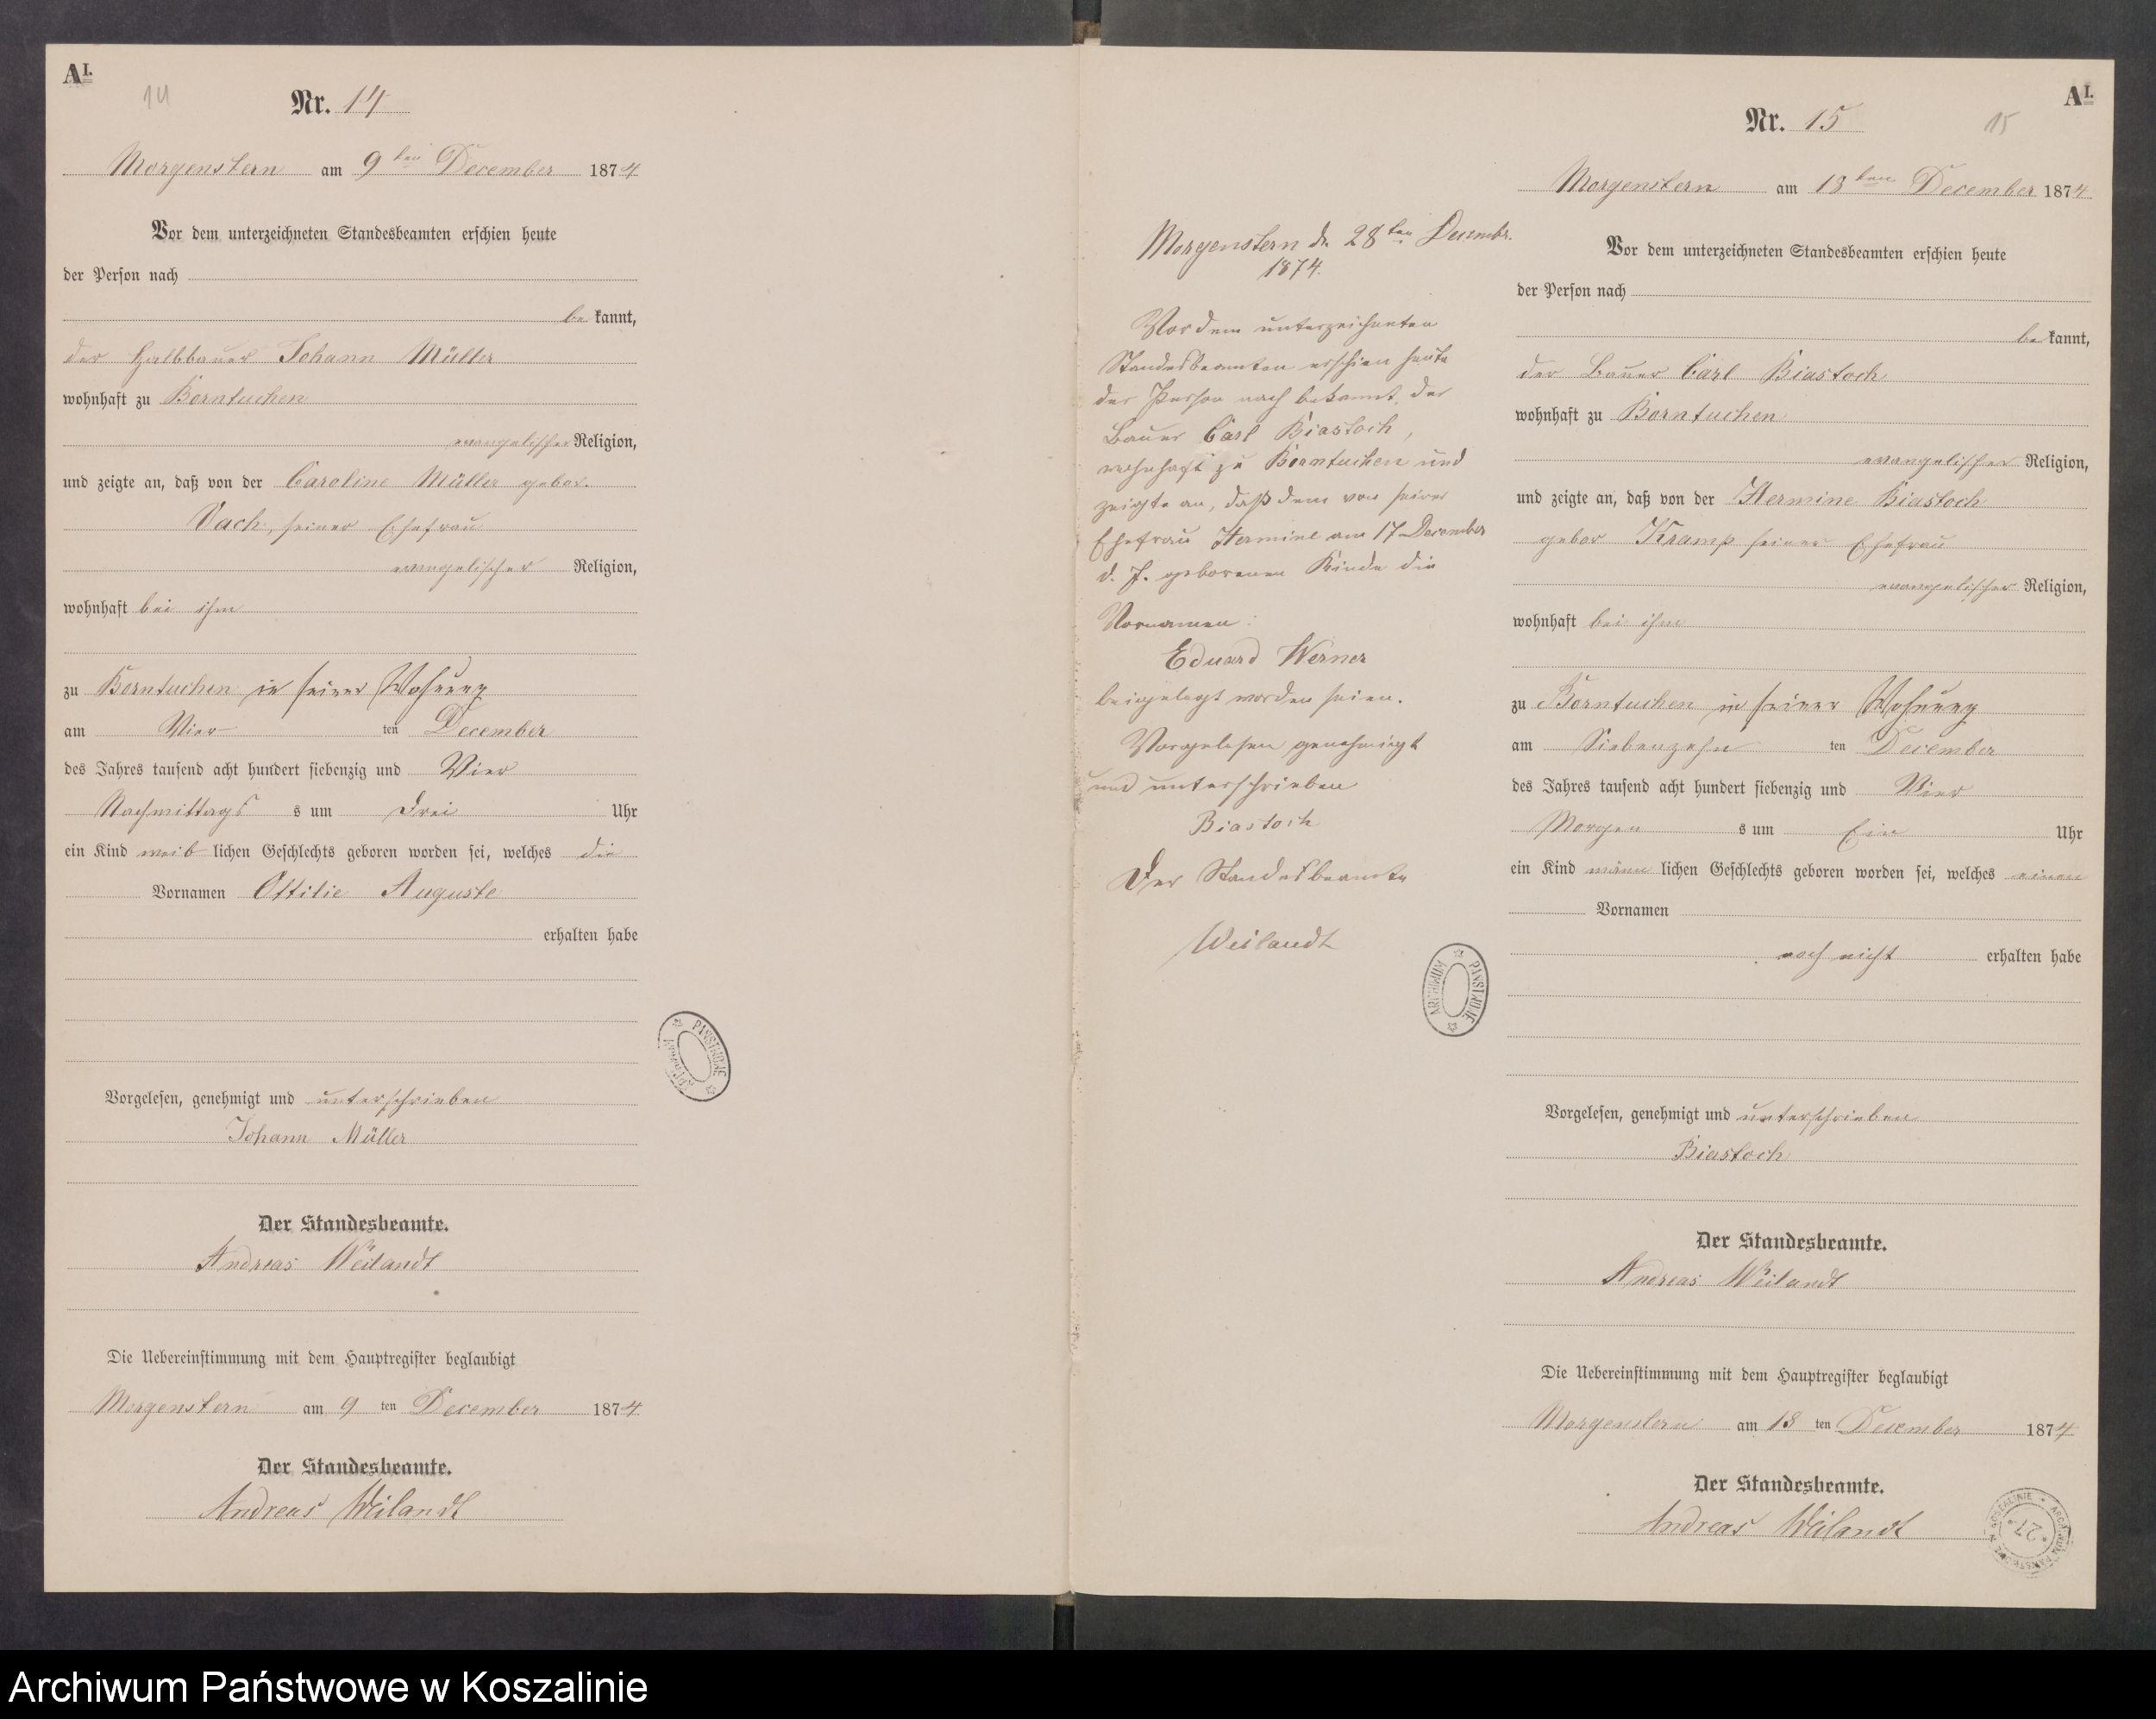 A I.
14
Nr. 14
Morgenstern am 9ten December 1874
Vor dem unterzeichneten Standesbeamten erschien heute
der Person nach
be kannt,
der Halbbauer Johann Müller
wohnhaft zu Borntuchen
evangelischer Religion,
und zeigte an, daß von der Caroline Müller gebor.
Vach, seiner Ehefrau
evangelischer Religion,
wohnhaft bei ihm
zu Borntuchen in seiner Wohnung
am Vier ten December
des Jahres tausend acht hundert siebenzig und Vier
Nachmittags s um drei Uhr
ein Kind weib lichen Geschlechts geboren worden sei, welches die
Vornamen Ottilie Auguste
erhalten habe
Vorgelesen, genehmigt und unterschrieben
Johann Müller
Der Standesbeamte.
Andreas Weilandt
Die Uebereinstimmung mit dem Hauptregister beglaubigt
Morgenstern am 9 ten December 1874
Der Standesbeamte.
Andreas Weilandt
ARCHIWUM PAŃSTWOWE
Morgenstern d. 28ten Decembr.
1874.
Vor dem unterzeichneten
Standesbeamten erschien heute
der Person nach bekannt, der
Bauer Carl Biastoch,
wohnhaft zu Borntuchen und
zeigte an, daß dem von seiner
Ehefrau Hermine am 17 December
d. J. geborenen Kinde die
Vornamen:
Eduard Werner
beigelegt worden seien.
Vorgelesen genehmigt
und unterschrieben
Biastoch
Der Standesbeamte
Weilandt
ARCHIWUM PAŃSTWOWE
A I.
15
Nr. 15
Morgenstern am 18ten December 1874
Vor dem unterzeichneten Standesbeamten erschien heute
der Person nach
be kannt,
der Bauer Carl Biastoch
wohnhaft zu Borntuchen
evangelischer Religion,
und zeigte an, daß von der Hermine Biastoch
gebor Kramp seiner Ehefrau
evangelischer Religion,
wohnhaft bei ihm
zu Borntuchen in seiner Wohnung
am Siebenzehn ten December
des Jahres tausend acht hundert siebenzig und Vier
Morgen s um Ein Uhr
ein Kind männ lichen Geschlechts geboren worden sei, welches einen
Vornamen
noch nicht erhalten habe
Vorgelesen, genehmigt und unterschrieben
Biastoch
Der Standesbeamte.
Andreas Weilandt
Die Uebereinstimmung mit dem Hauptregister beglaubigt
Morgenstern am 18 ten December 1874
Der Standesbeamte.
Andreas Weilandt
ARCHIWUM PAŃSTWOWE W KOSZALINIE
*27*
Archiwum Państwowe w Koszalinie